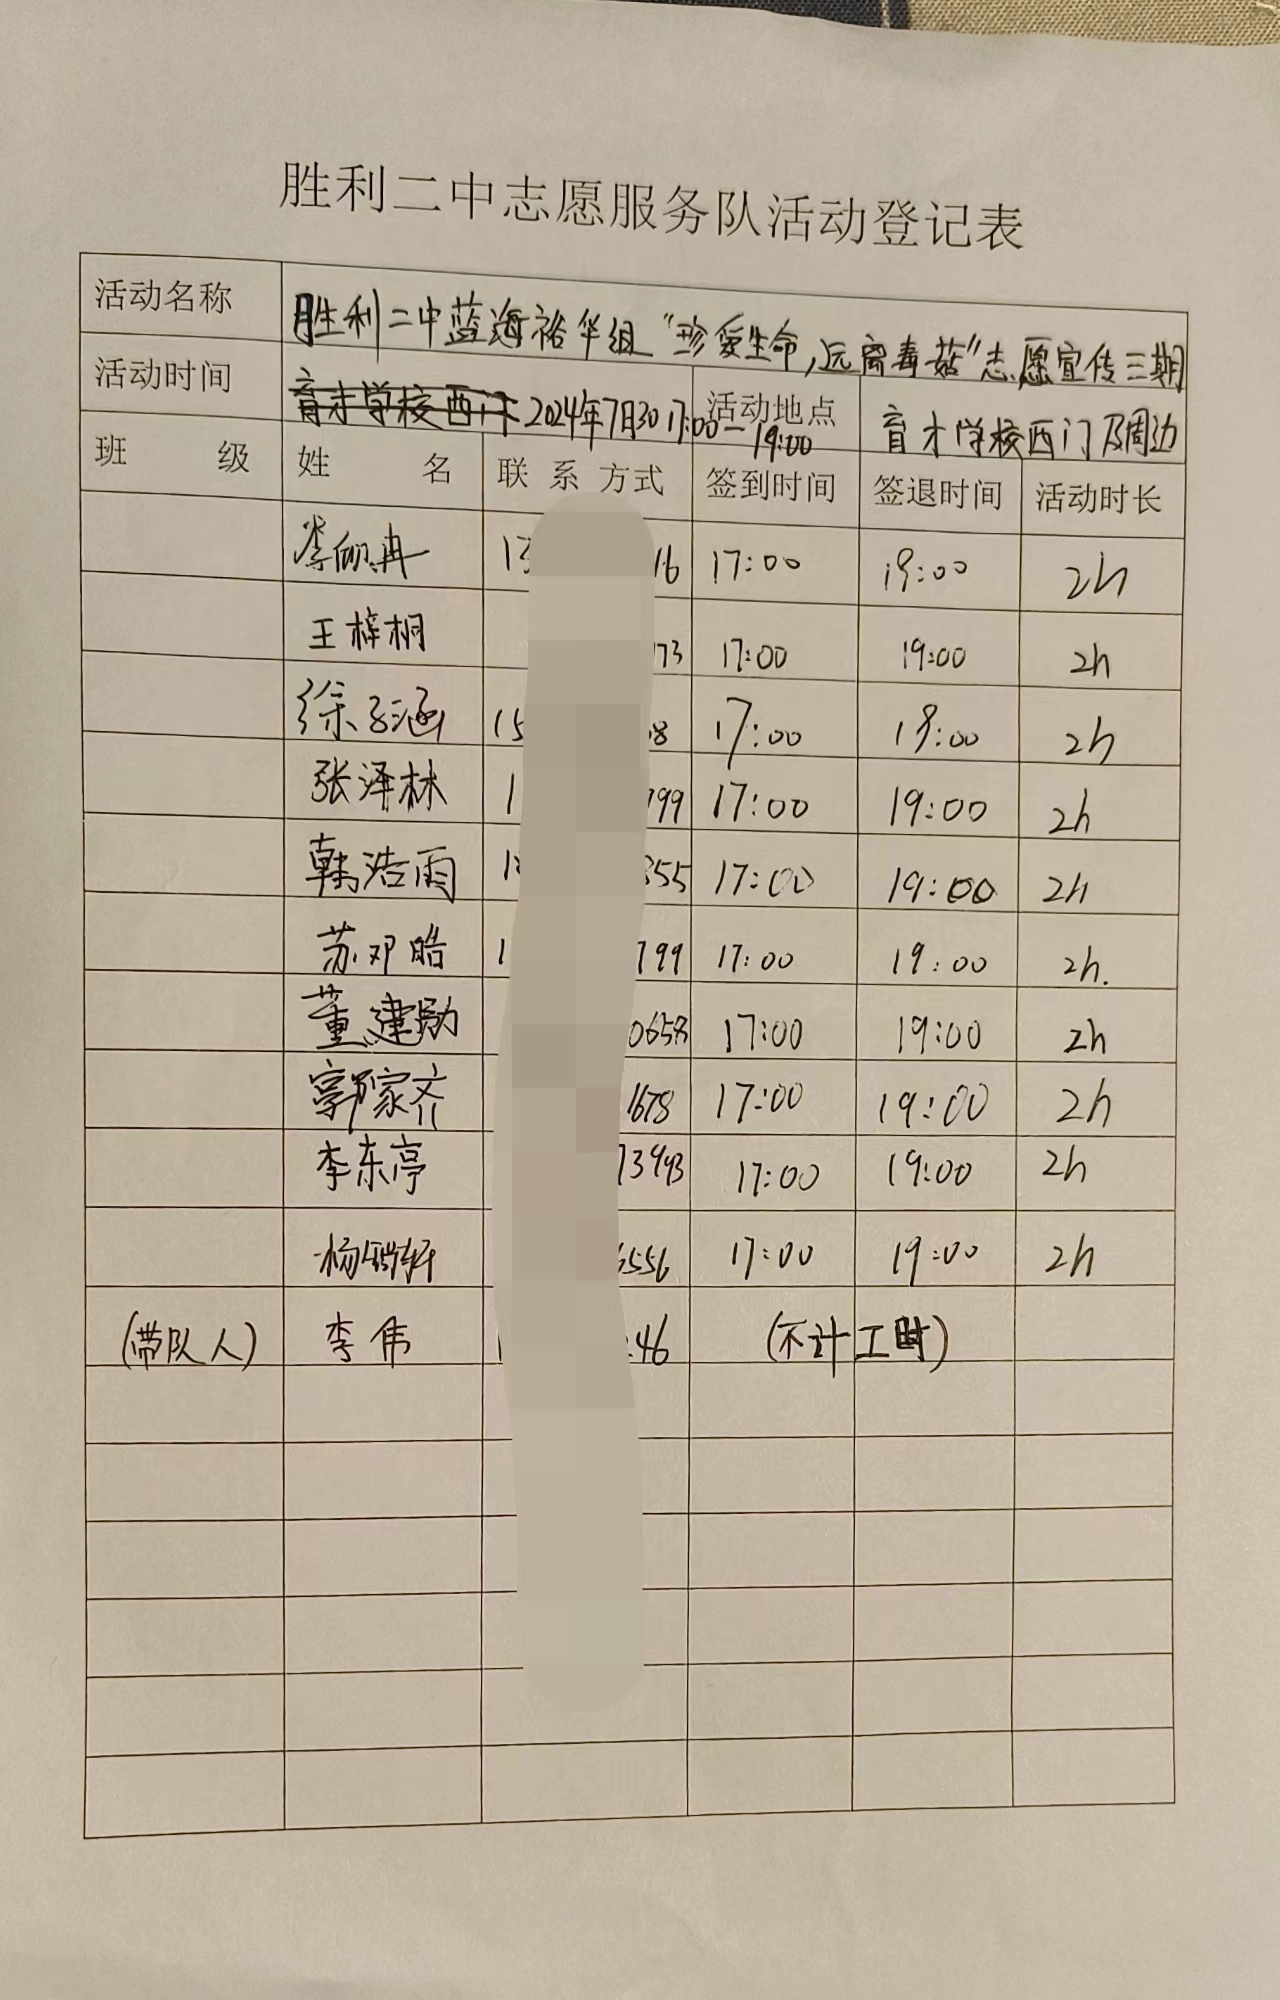 胜利二中志愿服务队活动登记表
活动名称 胜利二中蓝海裕华组“珍爱生命,远离毒菇”志愿宣传三期
活动时间 育才学校西门 2024年7月30 17:00—19:00 活动地点 育才学校西门及周边
班 级 姓 名 联 系 方式 签到时间 签退时间 活动时长
李 冉 13 16 17:00 19:00 2h
王梓桐 173 17:00 19:00 2h
徐子涵 15 8 17:00 19:00 2h
张泽林 1 799 17:00 19:00 2h
韩浩雨 1 355 17:00 19:00 2h
苏邓皓 1 799 17:00 19:00 2h.
董建勋 0658 17:00 19:00 2h
郭家齐 1678 17:00 19:00 2h
李东亭 73993 17:00 19:00 2h
杨 轩 6556 17:00 19:00 2h
(带队人) 李伟 46 (不计工时)